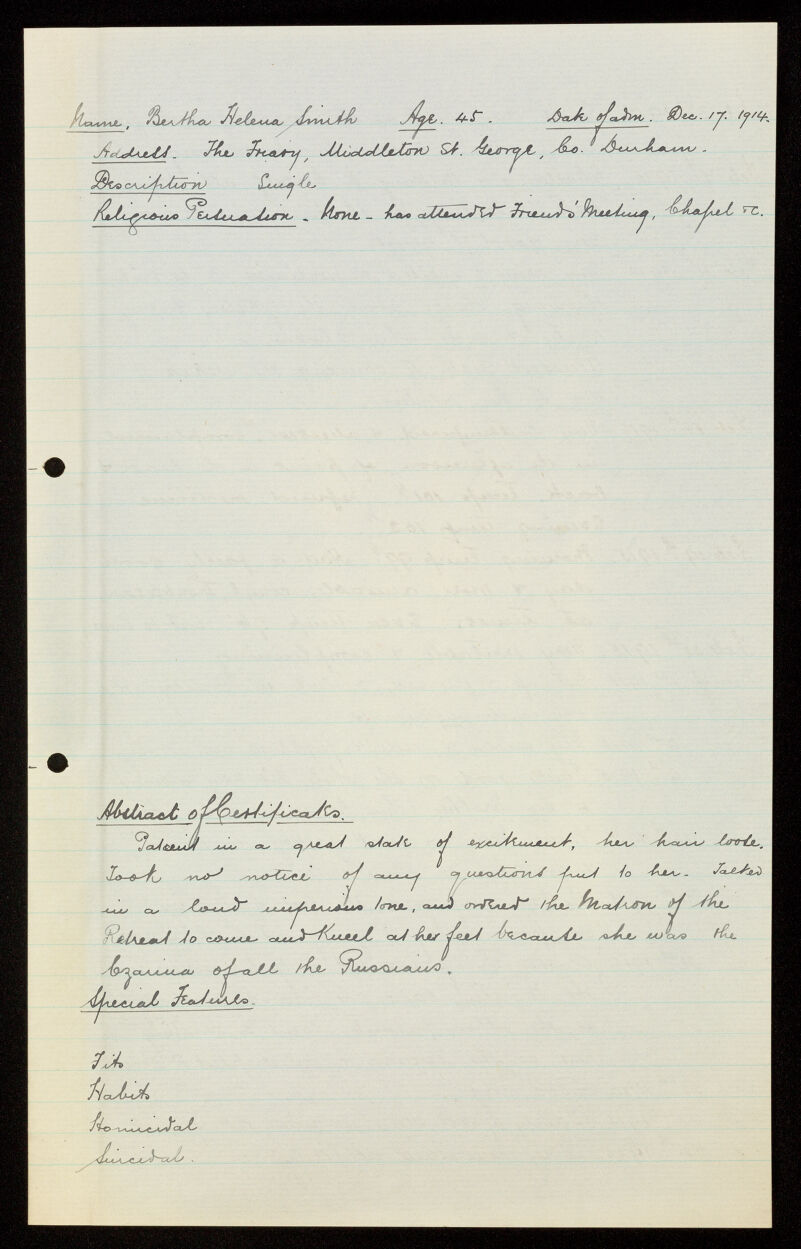 Name. Bertha Helena Smith Age. 45. Date of adm. Dec. 17. 1914.
Address. The Friary, Middleton St. George, Co. Durham.
Description Single
Religious Persuasion - None - has attended Friends' Meeting, Chapel &c.
Abstract of Certificates.
Patient in a great state of excitement, her hair loose.
Took no notice of any questions put to her. Talked
in a loud imperious tone, and ordered the Matron of the
Retreat to come and Kneel at her feet because she was the
Czarina of all the Russians.
Special Features.
Fits
Habits
Homicidal
Suicidal.